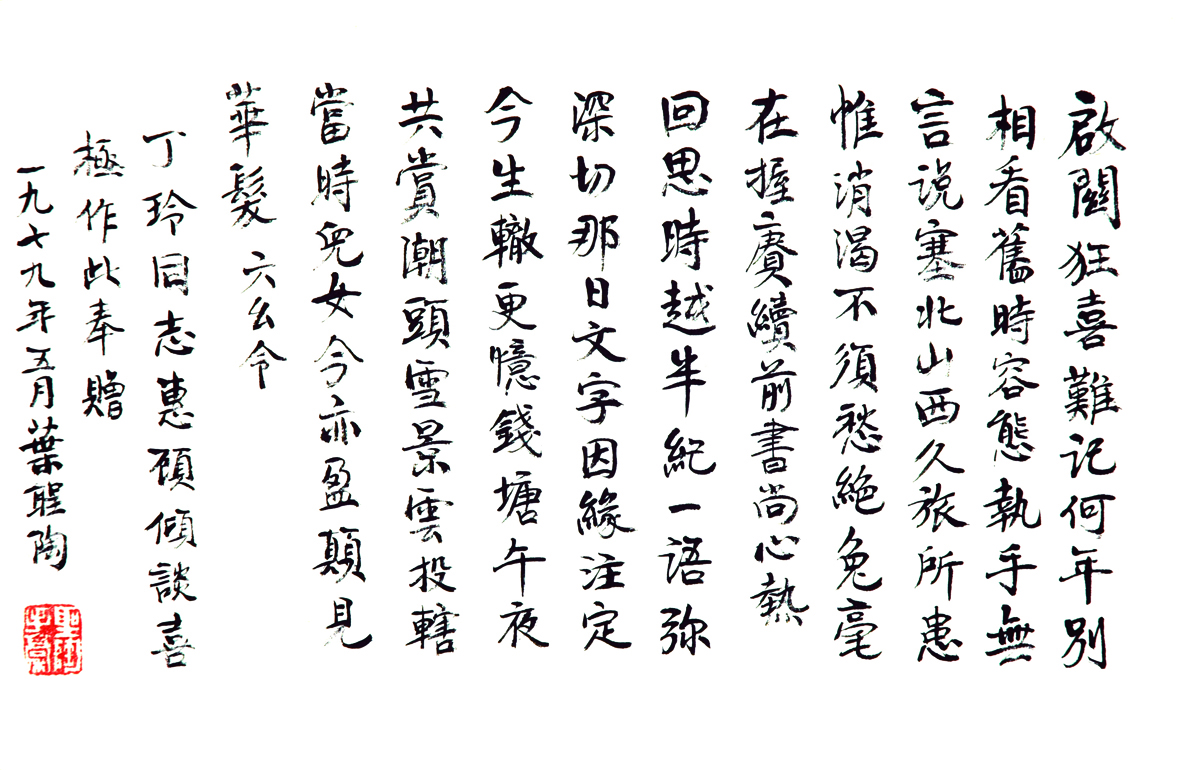 啟闗狂喜難記何年別
相看舊時容態執手無
言说塞北山西久旅所患
惟消渴不須愁絕兔毫
在握賡續前書尚心熱
回思時越半紀一語弥
深切那日文字因緣注定
今生轍更憶錢塘午夜
共賞潮頭雪景雲投轄
當時兒女今亦盈顛見
華髮 六幺令
丁玲同志惠顧傾談喜
極作此奉贈
一九七九年五月葉聖陶